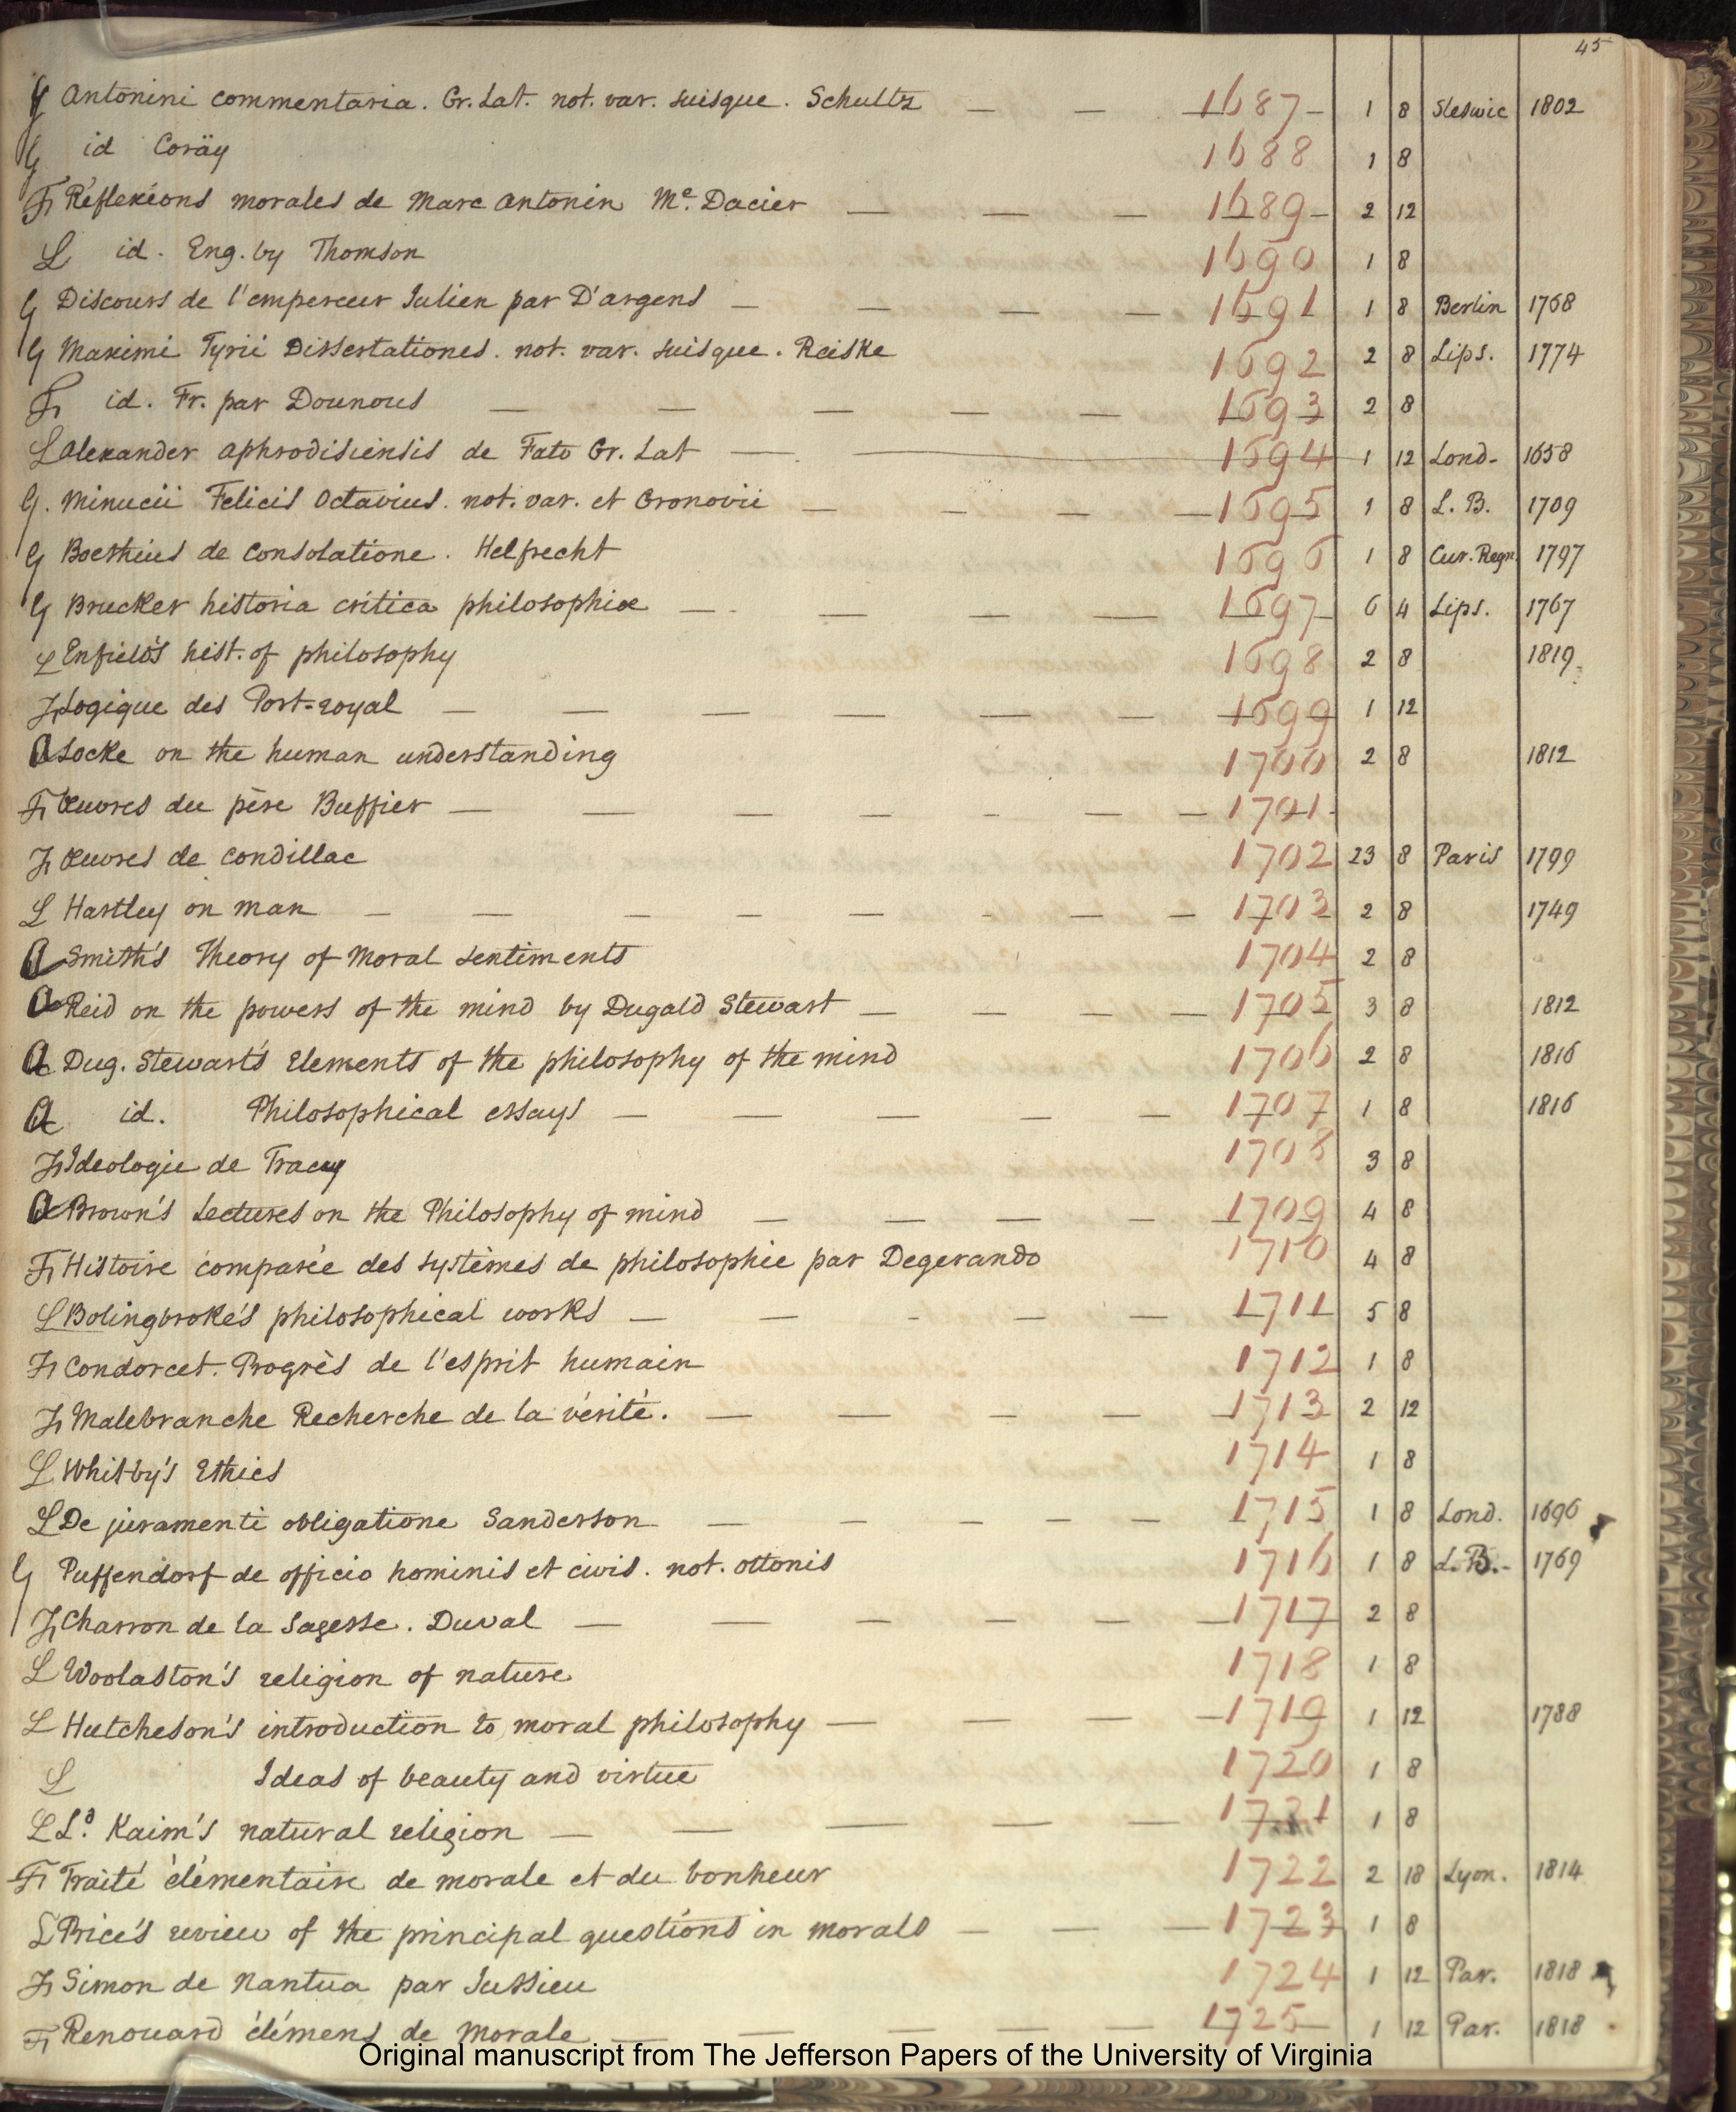 45
G Antonini commentaria. Gr. Lat. not. var. suisque. Schultz — — 1687 1 8 Sleswic 1802
G id Coräy 1688 1 8
F Réflexions morales de Marc Antonin Me. Dacier — — — 1689 2 12
L id. Eng. by Thomson 1690 1 8
G Discours de l'empereur Julien par D'argens — — — — 1691 1 8 Berlin 1768
G Maximi Tyrii Dissertationes. not. var. suisque. Reiske 1692 2 8 Lips. 1774
F id. Fr. par Dounous — — — — — 1693 2 8
L Alexander aphrodisiensis de Fato Gr. Lat — 1694 1 12 Lond. 1658
G. Minucii Felicis Octavius. not. var. et Gronovii — — — — 1695 1 8 L. B. 1709
G Boethius de Consolatione. Helfrecht 1696 1 8 Cur. Regn. 1797
G Brucker historia critica philosophiae — — — — 1697 6 4 Lips. 1767
L Enfield's hist. of philosophy 1698 2 8 1819.
F Logique des Port-royal — — — — — — 1699 1 12
A Locke on the human understanding 1700 2 8 1812
F Œuvres du père Buffier — — — — - — — 1701
F Œuvres de Condillac 1702 23 8 Paris 1799
L Hartley on man — — — — — - — — 1703 2 8 1749
A Smith's Theory of Moral sentiments 1704 2 8
A Reid on the powers of the mind by Dugald Stewart — — — — 1705 3 8 1812
A Dug. Stewart's Elements of the philosophy of the mind 1706 2 8 1816
A id. Philosophical essays — — — — — 1707 1 8 1816
F Ideologie de Tracy 1708 3 8
A Brown's Lectures on the Philosophy of mind — — — — 1709 4 8
F Histoire comparée des systèmes de philosophie par Degerando 1710 4 8
L Bolingbroke's philosophical works — — - — — 1711 5 8
F Condorcet. Progrès de l'esprit humain 1712 1 8
F Malebranche Recherche de la vérité. — — — — 1713 2 12
L Whitby's Ethics 1714 1 8
L De juramenti obligatione Sanderson — — — — — 1715 1 8 Lond. 1696
G Puffendorf de officio hominis et civis. not. Ottonis 1716 1 8 L. B. 1769
F Charron de la Sagesse. Duval — — — — — 1717 2 8
L Woolaston's religion of nature 1718 1 8
L Hutcheson's introduction to moral philosophy — — — — 1719 1 12 1788
L Ideas of beauty and virtue 1720 1 8
L Ld. Kaim's natural religion — — — — — 1721 1 8
F Traité élémentaire de morale et du bonheur 1722 2 18 Lyon. 1814
L Price's review of the principal questions in morals — — — 1723 1 8
F Simon de Nantua par Jussieu 1724 1 12 Par. 1818
F Renouard élémens de morale — — — — — 1725 1 12 Par. 1818
Original manuscript from The Jefferson Papers of the University of Virginia